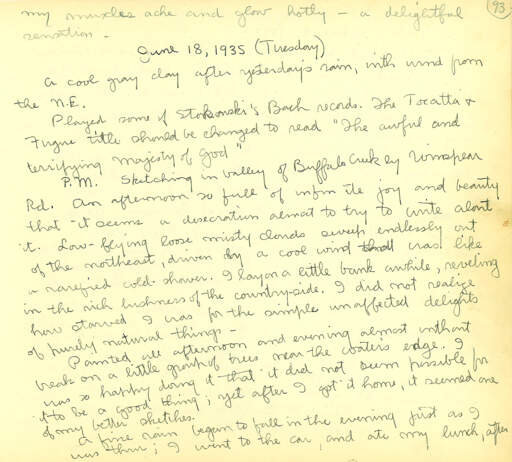 my muscles ache and glow hotly – a delightful
sensation –
93
June 18, 1935 (Tuesday)
A cool gray day after yesterday's rain, with wind from
the N.E.
Played some of Stokowski's Bach records. The Tocatta &
Fugue title should be changed to read "The awful and
terrifying majesty of God"
P.M. Sketching in valley of Buffalo Creek by Winspear
Rd. An afternoon so full of infinite joy and beauty
that it seems a desecration almost to try to write about
it. Low-flying loose misty clouds sweep endlessly out
of the northeast, driven by a cool wind that was like
a rarefied cold shower. I lay on a little bank awhile, reveling
in the rich lushness of the countryside. I did not realize
how starved I was for the simple unaffected delights
of purely natural things –
Painted all afternoon and evening almost without
break on a little group of trees near the water's edge. I
was so happy doing it that it did not seem possible for
it to be a good thing; yet after I got it home, it seemed one
of my better sketches.
A fine rain began to fall in the evening just as I
was thru; I went to the car, and ate my lunch, after